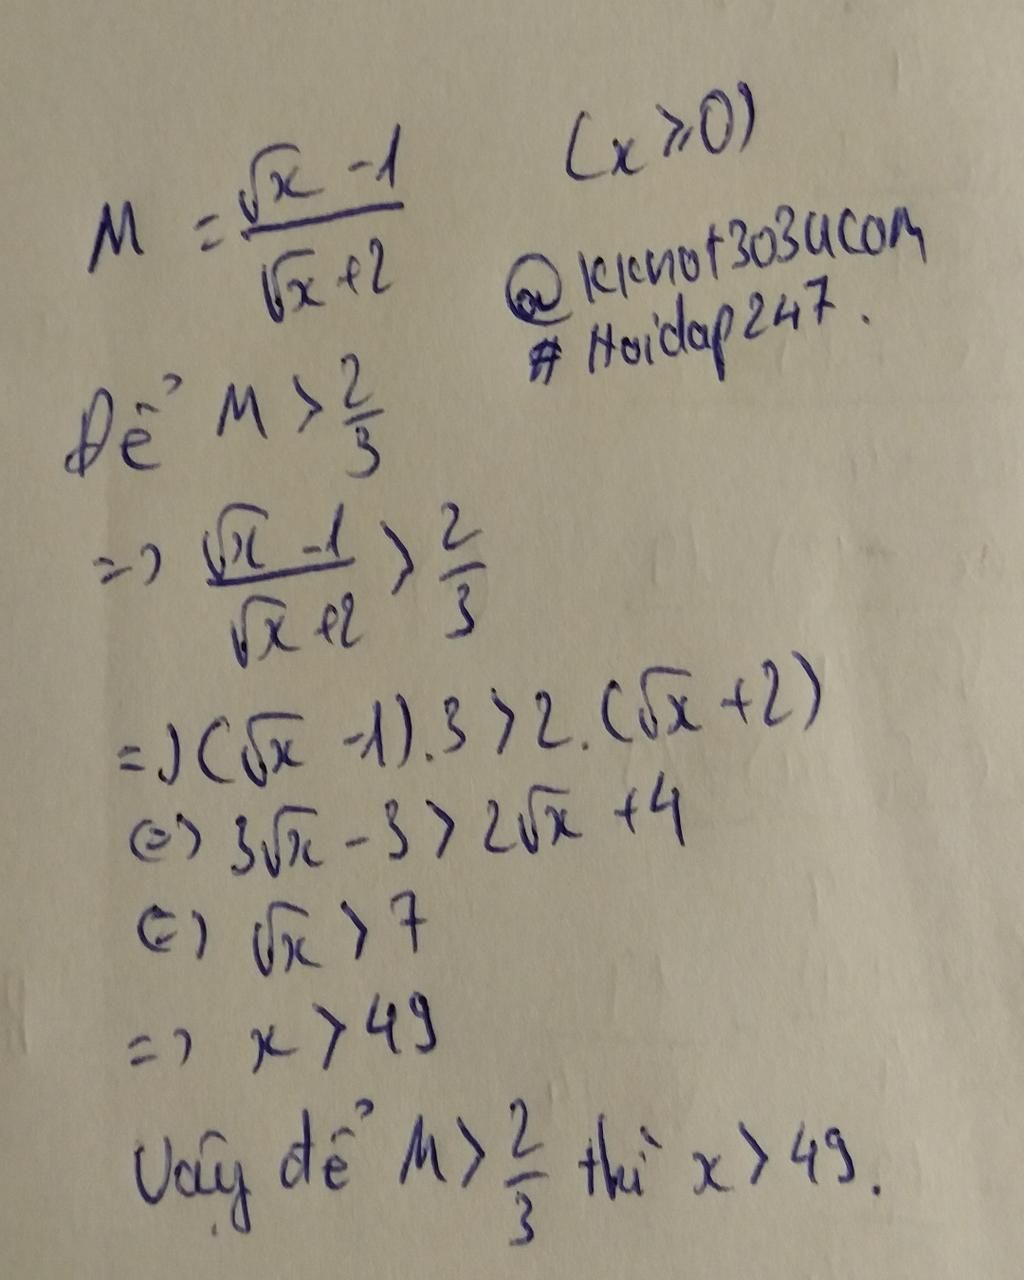 M = (√x - 1)/(√x + 2) (x ≥ 0)
@kknot3034com
# Hoidap247.
Để M > 2/3
=> (√x - 1)/(√x + 2) > 2/3
=> (√x - 1).3 > 2.(√x + 2)
<=> 3√x - 3 > 2√x + 4
<=> √x > 7
=> x > 49
Vậy để M > 2/3 thì x > 49.